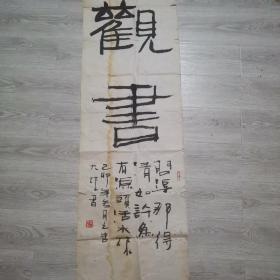 觀書
問渠那得
清如許為
有源頭活水來
己卯年月
九書